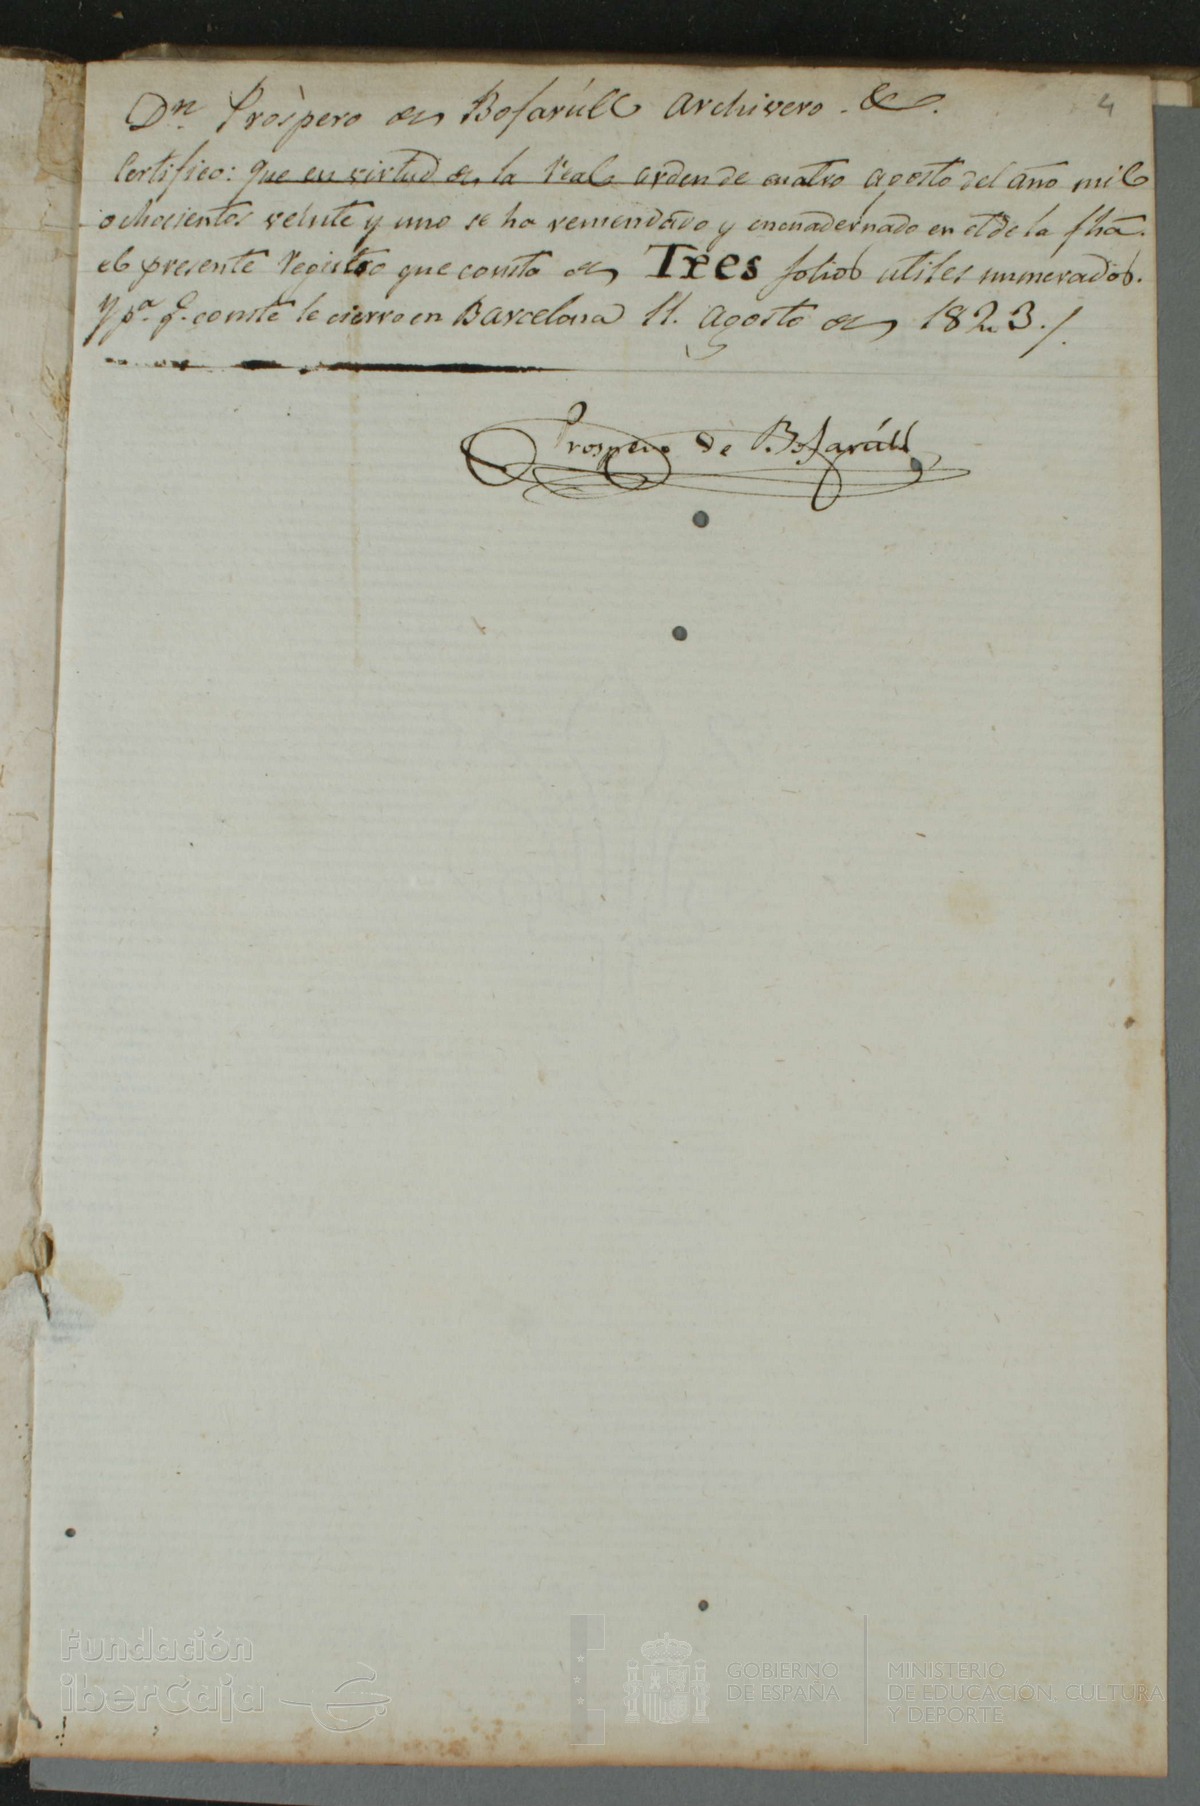 4
Dn. Pròspero de Bofarúll Archivero. &.
Certifico: que en virtud de la Real orden de cuatro agosto del año mil
ochocientos veinte y uno se ha remendado y encuadernado en el de la fhã.
el presente Registro que consta de Tres folios utiles numerados.
Y pa. q. conste lo cierro en Barcelona 11. agosto de 1823./.
Prospero de Bofarúll
Fundación
iberCaja
GOBIERNO
DE ESPAÑA
MINISTERIO
DE EDUCACIÓN, CULTURA
Y DEPORTE